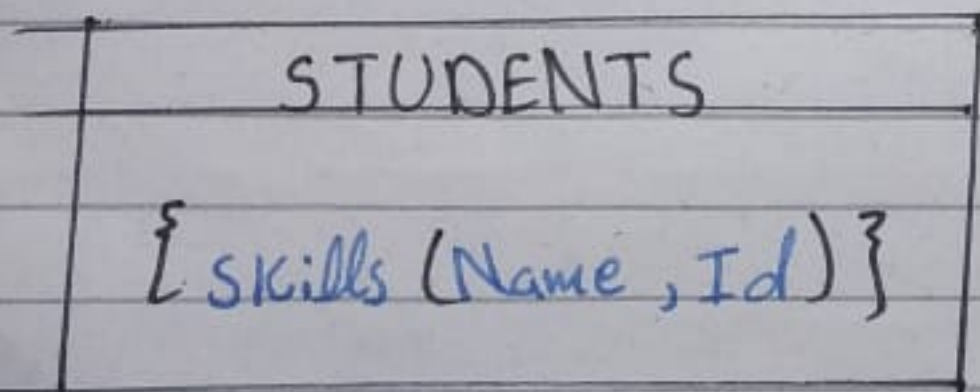 STUDENTS
{skills (Name, Id)}